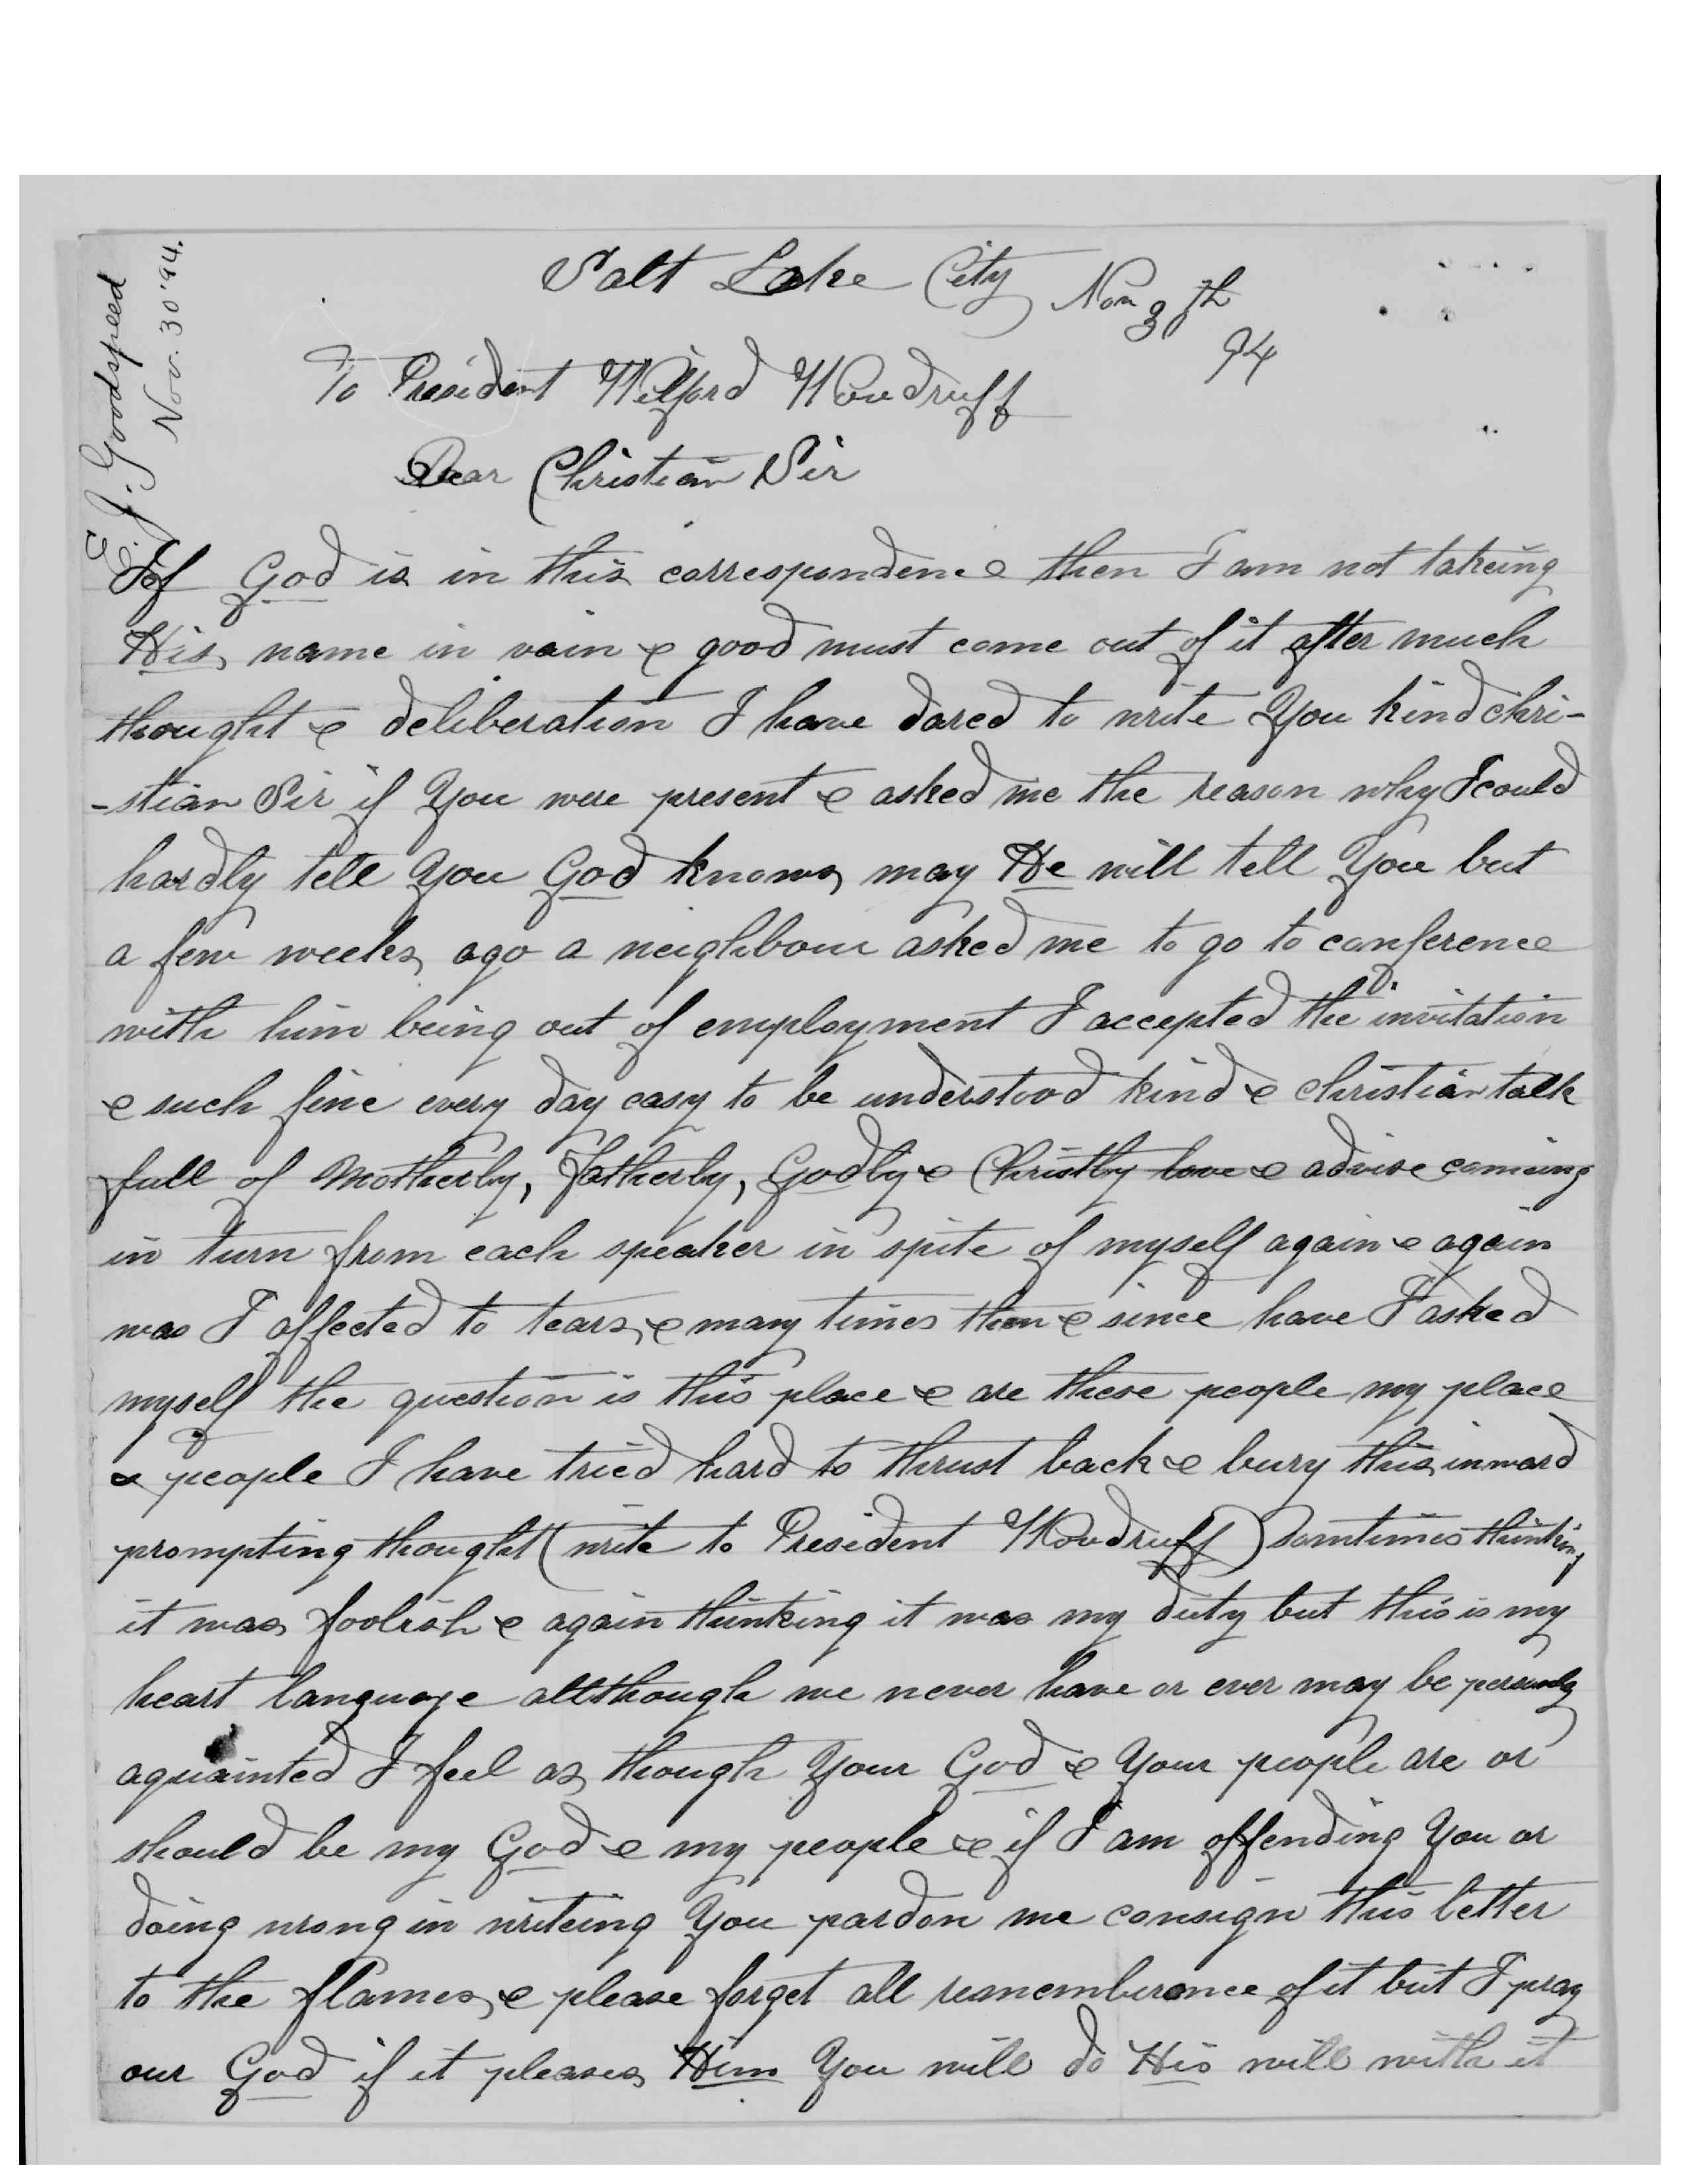 E. J. Goodspeed
Nov. 30 '94.
Salt Lake City Nov 30th
94
To President Wilford Woodruff
Dear Christian Sir
If God is in this correspondence then I am not takeing
His name in vain & good must come out of it after much
thought & deliberation I have dared to write You kind chri-
-stian Sir if You were present & asked me the reason why I could
hardly tell You God knows may He will tell You but
a few weeks ago a neighbour asked me to go to conference
with him being out of employment I accepted the invitation
& such fine every day easy to be understood kind & christian talk
full of Motherly, Fatherly, Godly & Christly love & advise comeing
in turn from each speaker in spite of myself again & again
was I affected to tears & many times then & since have I asked
myself the question is this place & are these people my place
& people I have tried hard to thrust back & bury this inward
prompting thought (write to President Woodruff) somtimes thinking
it was foolish & again thinking it was my duty but this is my
heart language allthough we never have or ever may be personaly
aquainted I feel as though Your God & Your people are or
should be my God & my people & if I am offending You or
doing wrong in writeing You pardon me consign this letter
to the flames & please forget all rememberance of it but I pray
our God if it pleases Him You will do His will with it